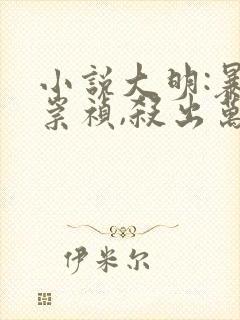 小說大明:暴
崇禎,殺出萬
伊米尔